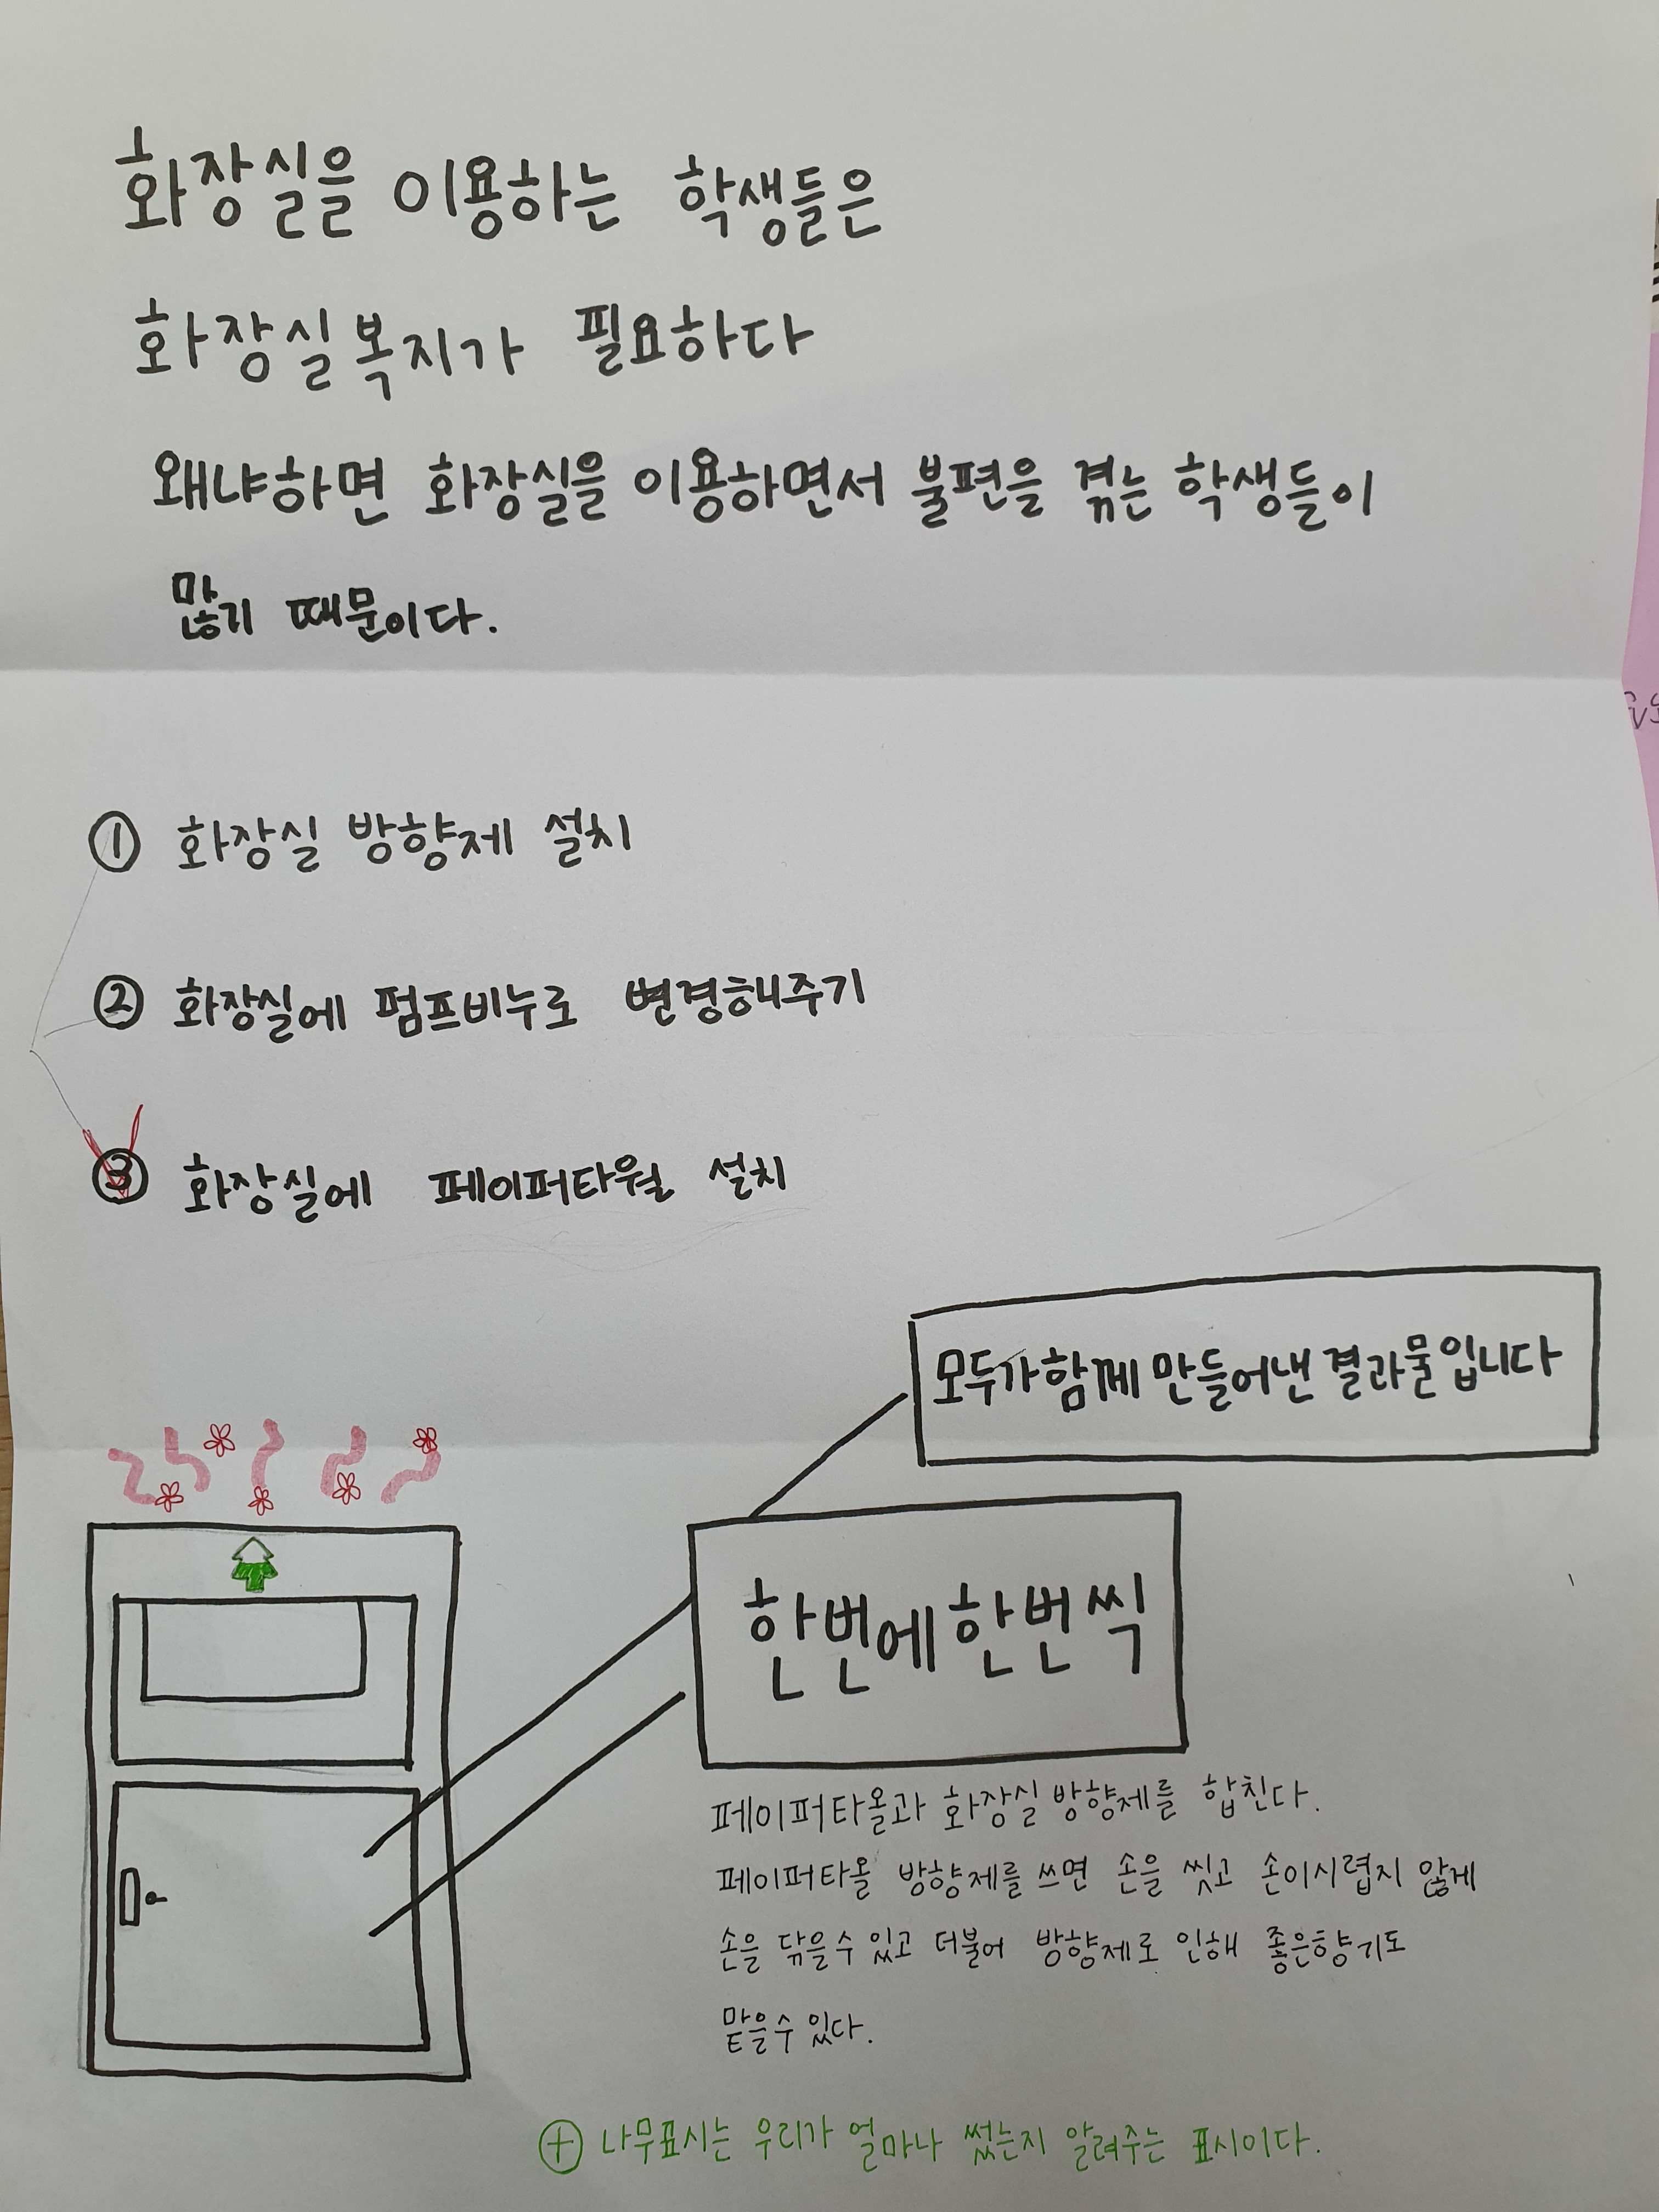 화장실을 이용하는 학생들은
화장실복지가 필요하다
왜냐하면 화장실을 이용하면서 불편을 겪는 학생들이
많기 때문이다.
① 화장실 방향제 설치
② 화장실에 펌프비누로 변경해주기
③ 화장실에 페이퍼타월 설치
모두가함께 만들어낸 결과물입니다
한번에한번씩
페이퍼타올과 화장실 방향제를 합친다.
페이퍼타올 방향제를 쓰면 손을 씻고 손이시렵지 않게
손을 닦을수 있고 더불어 방향제로 인해 좋은향기도
맡을수 있다.
⊕ 나무표시는 우리가 얼마나 썼는지 알려주는 표시이다.